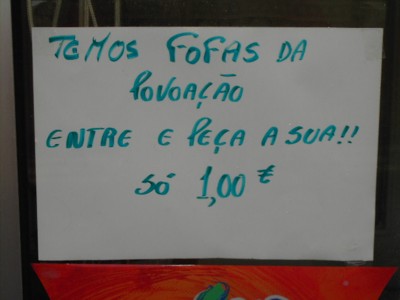 TEMOS FOFAS DA
POVOAÇÃO
ENTRE E PEÇA A SUA!!
SÓ 1,00 €